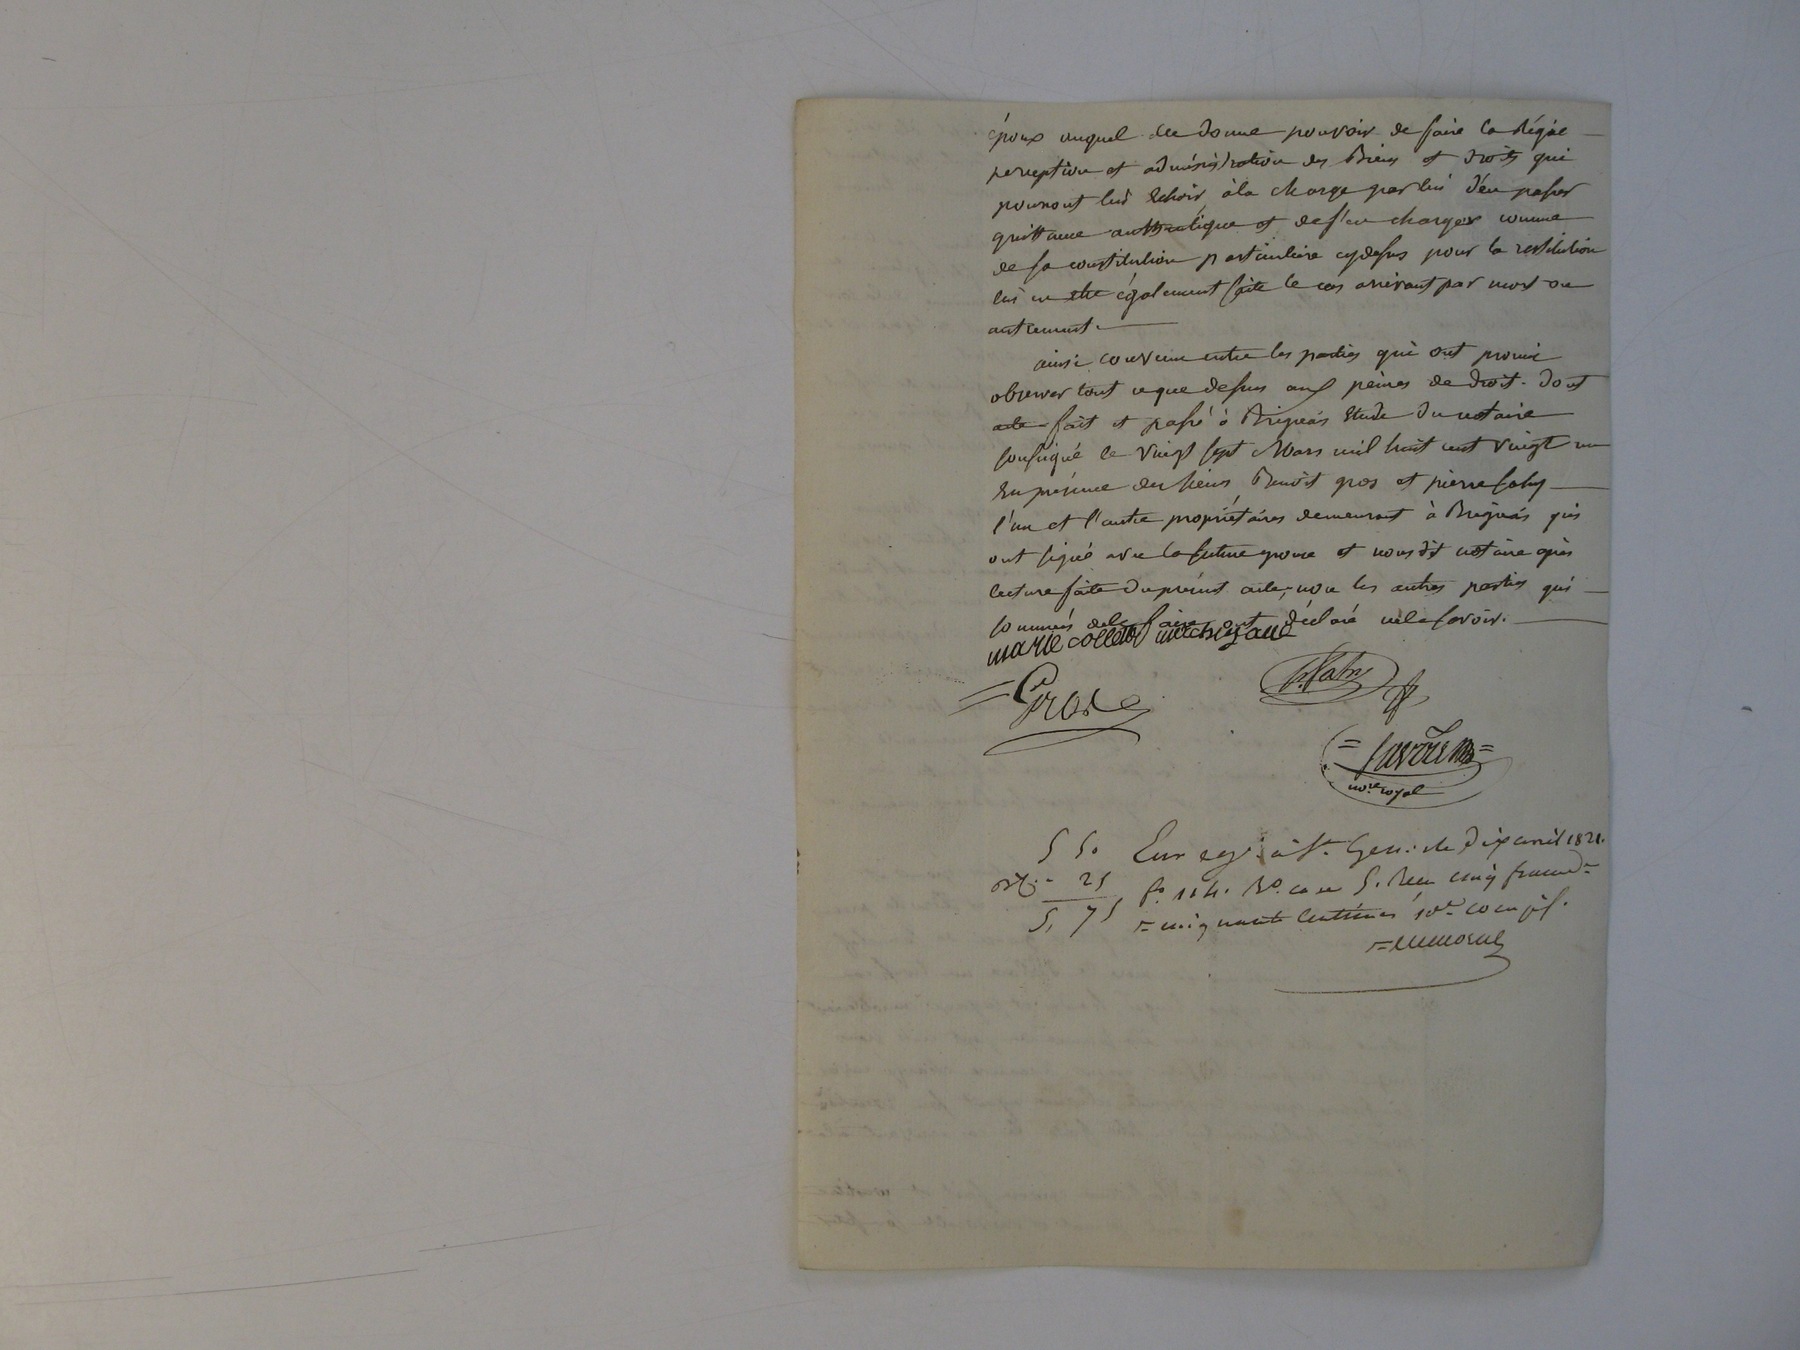 époux auquel elle donne pouvoir de faire la Régie
perception et administration des Biens et droits qui
pourront lui Echoir, à la charge par lui d'en passer
quittance authentique et de s'en charger comme
de sa constitution particulière cydessus pour la restitution
lui en etre également faite le cas arrivant par mort ou
autrement.
ainsi convenu entre les parties qui ont promis
observer tout ce que dessus aux peines de droit. dont
acte fait et passé à Brignais Etude du notaire
soussigné le vingt sept Mars mil huit cent vingt un
En présence des sieurs Benoît gros et pierre
l'un et l'autre propriétaires demeurant à Brignais qui
ont signé avec la future epouse et nous dit notaire après
lecture faite du présent acte, non les autres parties qui
sommés de le faire ont déclaré ne le savoir.
marie
Gros
no.re royal
5 50 Enregé à St. Genis le dix avril 1821.
25 fo. 114. Vo. case 5. Reçu cinq francs
5, 75 cinquante centimes